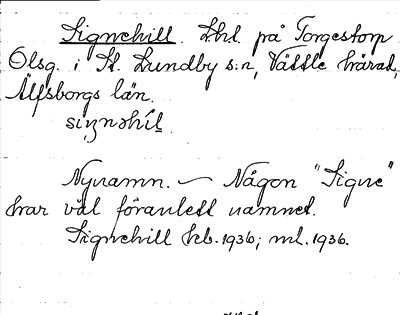 Signehill. Lht. på Torgestorp
Olsg. i St. Lundby s:n, Vättle härad,
Älfsborgs län.
Nynamn. — Någon "Signe"
har väl föranlett namnet.
Signehill hb. 1936; ml. 1936.